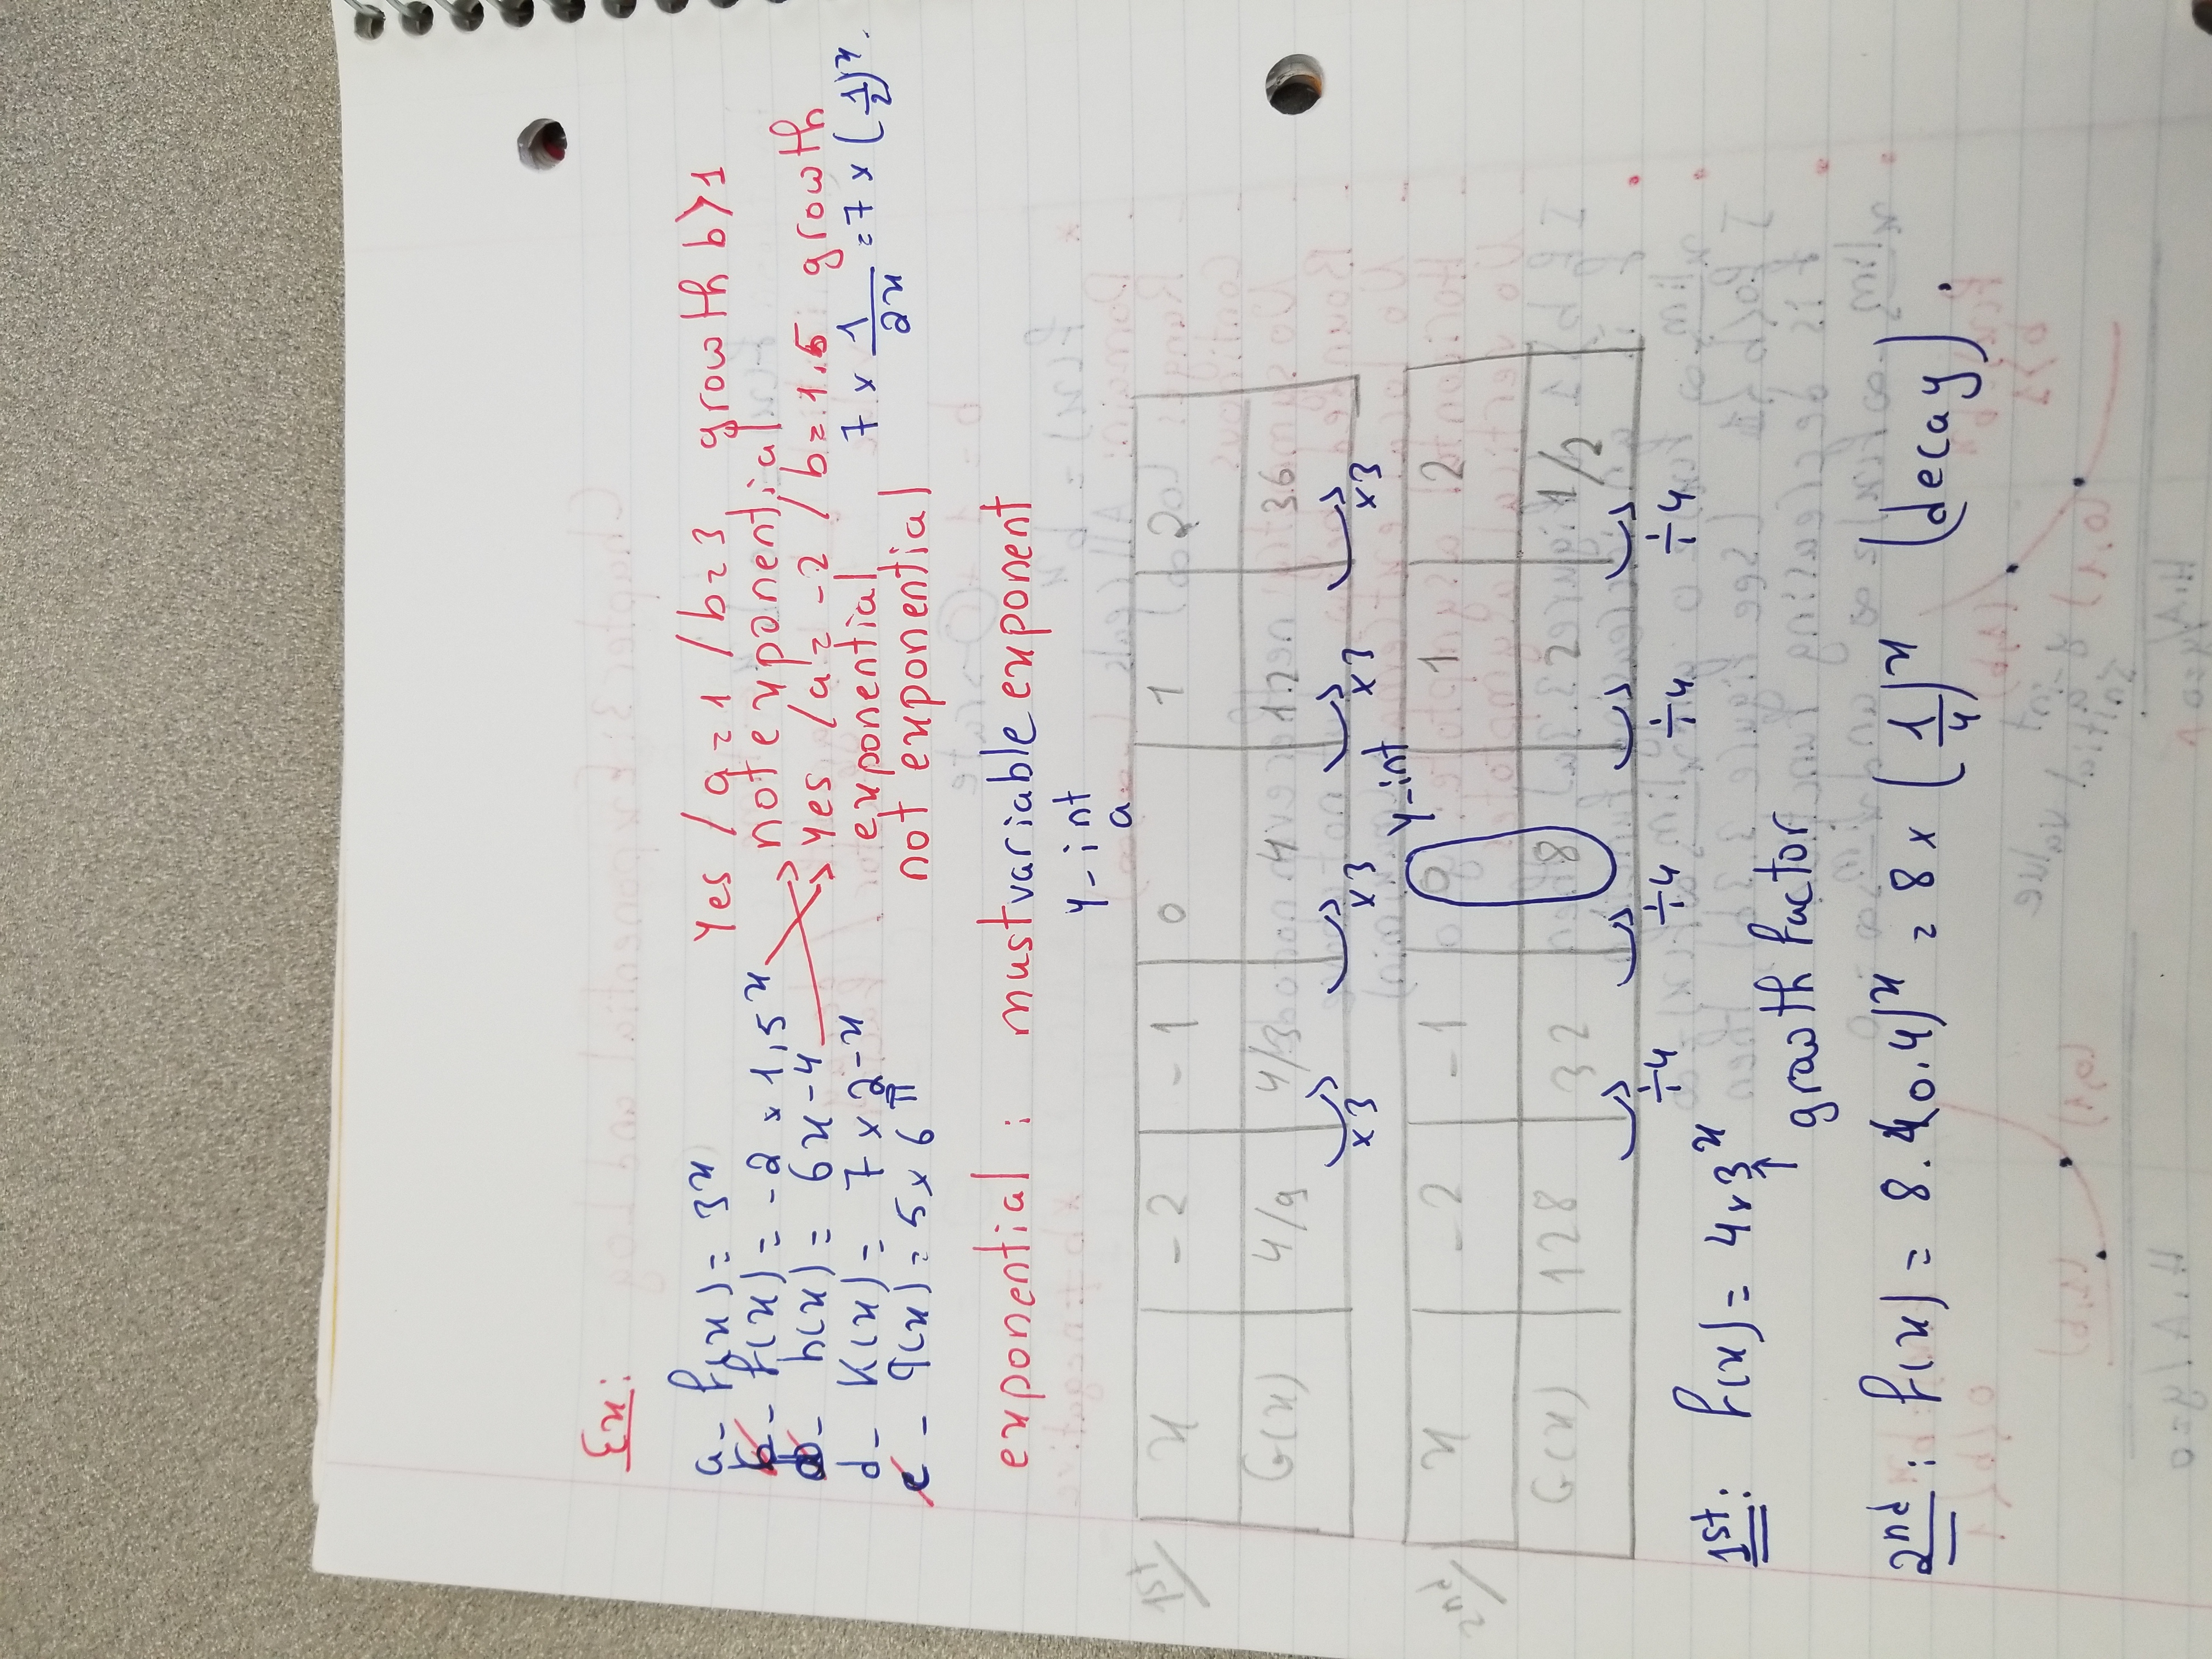 Ex:
a- f(x) = 3^x yes / a=1 / b=3 growth b>1
b- f(x) = -2 x 1,5^x not exponential
h(x) = 6x-4 yes / a=-2 / b=1.5 growth
d- K(x) = 7 x 2^-x exponential 7 x 1/2^x = 7 x (1/2)^x.
e- q(x) = 5 x 6^π not exponential
exponential : must variable exponent
y-int
a
1st/
x -2 -1 0 1 2
G(x) 4/9 4/3 4 12 36
x3 x3 x3 x3
y-int
2nd/
x -2 -1 0 1 2
G(x) 128 32 8 2 1/2
÷4 ÷4 ÷4 ÷4
1st: f(x) = 4x3^x
growth factor
2nd: f(x) = 8.(0.4)^x = 8 x (1/4)^x (decay).